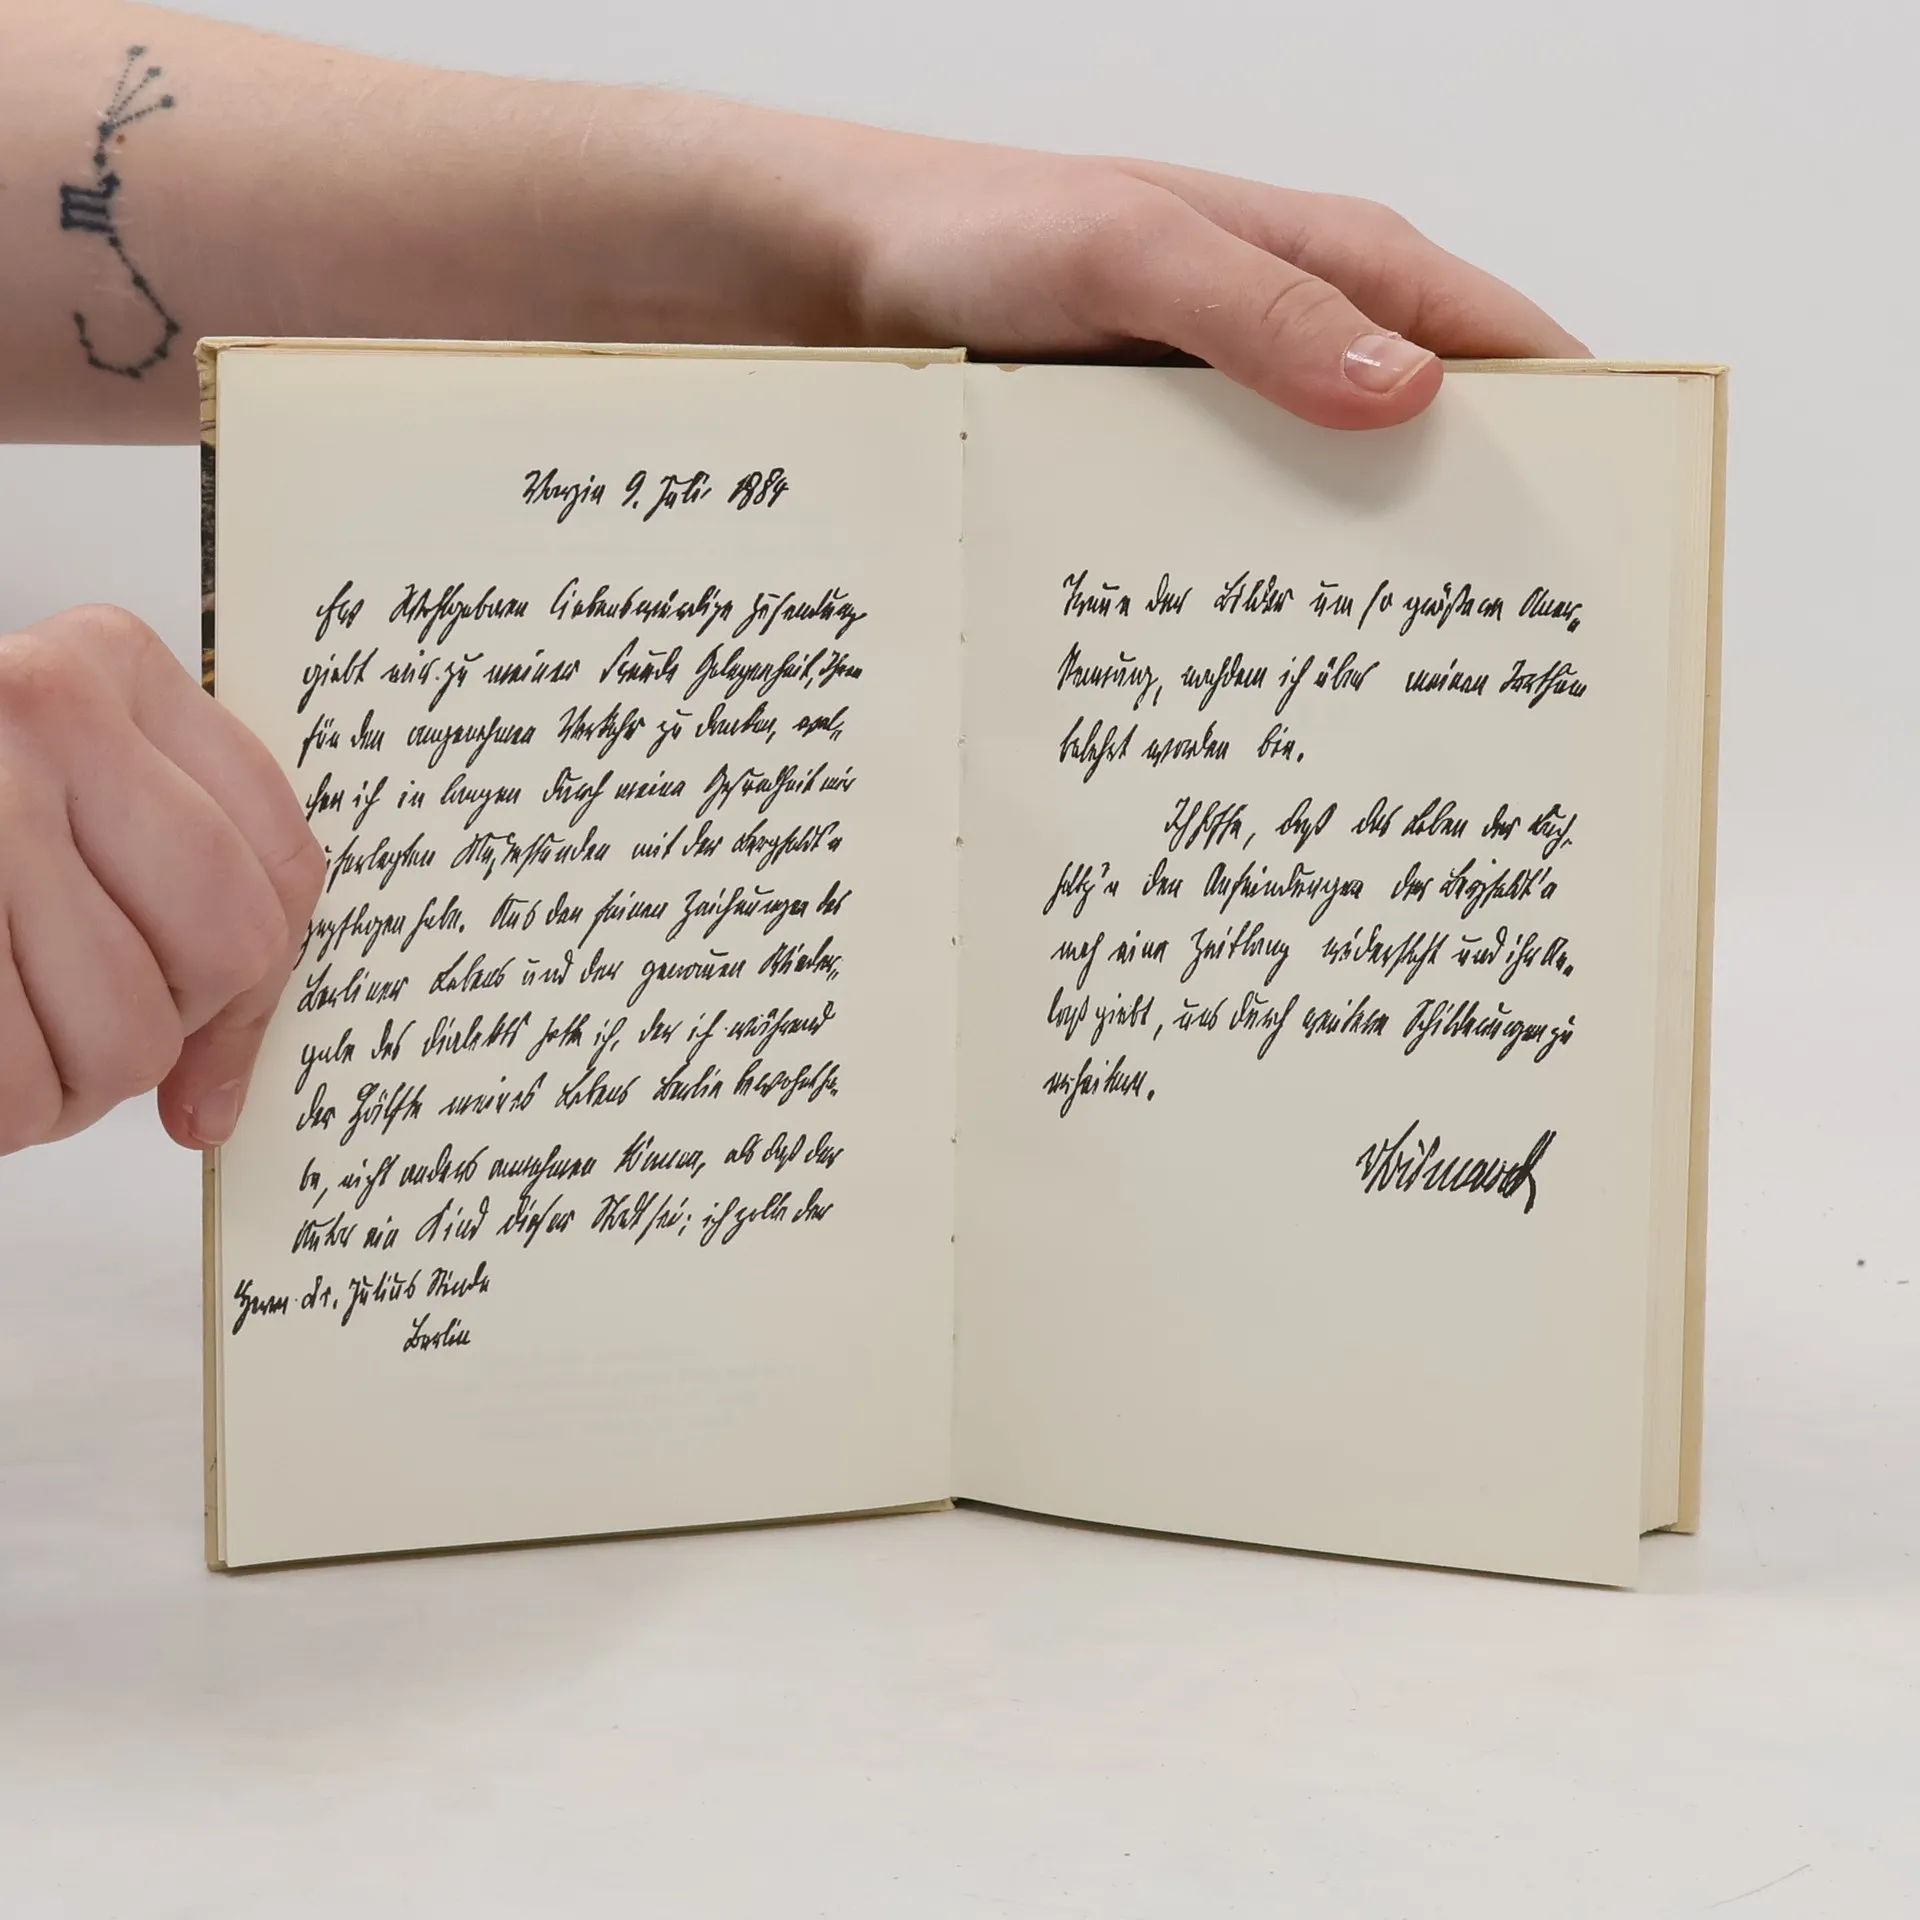 Varzin 9. Juli 1884
Ew Wohlgeboren liebenswürdige Zusendung
giebt mir zu meiner Freude Gelegenheit, Ihnen
für den angenehmen Verkehr zu danken, wel-
chen ich in langen durch meine Gesundheit mir
auferlegten Mußestunden mit der Bergfeldt'n
gepflogen habe. Aus den feinen Zeichnungen des
Berliner Lebens und der genauen Wieder-
gabe des Dialekts hatte ich, der ich während
der Hälfte meines Lebens Berlin bewohnt ha-
be, nicht anders annehmen können, als daß der
Autor ein Kind dieser Stadt sei; ich zolle der
Herrn Dr. Julius Stinde
Berlin
Treue der Bilder um so größere Aner-
kennung, nachdem ich über meinen Irrthum
belehrt worden bin.
Ich hoffe, daß das Leben der Buch-
holtz'n den Anfeindungen der Bergfeldt'n
noch eine Zeitlang widersteht und ihr An-
laß giebt, uns durch weitere Schilderungen zu
erheitern.
vBismarck